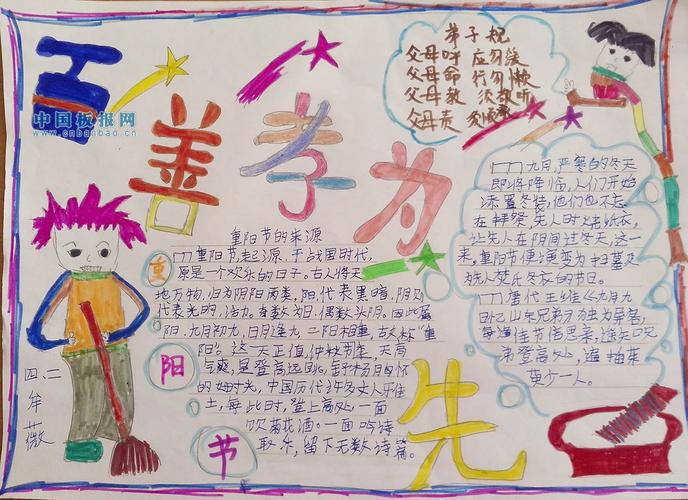 百
善
孝
为
先
中国板报网
www.cnbanbao.cn
弟子规
父母呼 应勿缓
父母命 行勿懒
父母教 须敬听
父母责 须顺承
重阳节的来源
重阳节起源于战国时代,
原是一个欢乐的日子。古人将天
地万物归为阴阳两类,阳代表黑暗,阴则
代表光明,活力。奇数为阳,偶数为阴。因此属
阳。九月初九,日月逢九,二阳相重,故称“重
阳”。这一天正值仲秋节至,天高
气爽,是登高远眺,舒
的好时光,中国历代许多文人雅
士,每此时,登上高处,一面
饮菊花酒。一面吟诗
取乐,留下无数诗篇。
重
阳
节
四、二
牟薇
九月,严寒的冬天
即将降临,人们开始
添置冬装,他们也不忘
在拜祭先人时火烧纸衣,
让先人在阴间过冬天,这一
来,重阳节便演变为扫墓及
为先人焚化冬衣的节日。
唐代王维《九月九
日忆山东兄弟》:独为异客,
每逢佳节倍思亲,遥知兄
弟登高处,遍插茱
萸少一人。